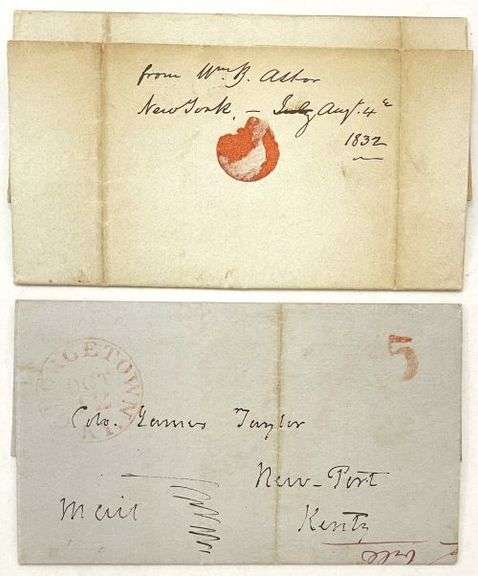 from Wm B. Astor
New York, - July Augt. 4th
1832
GEORGETOWN KY
OCT
5
Colo. James Taylor
New-Port
Mail
Kenty